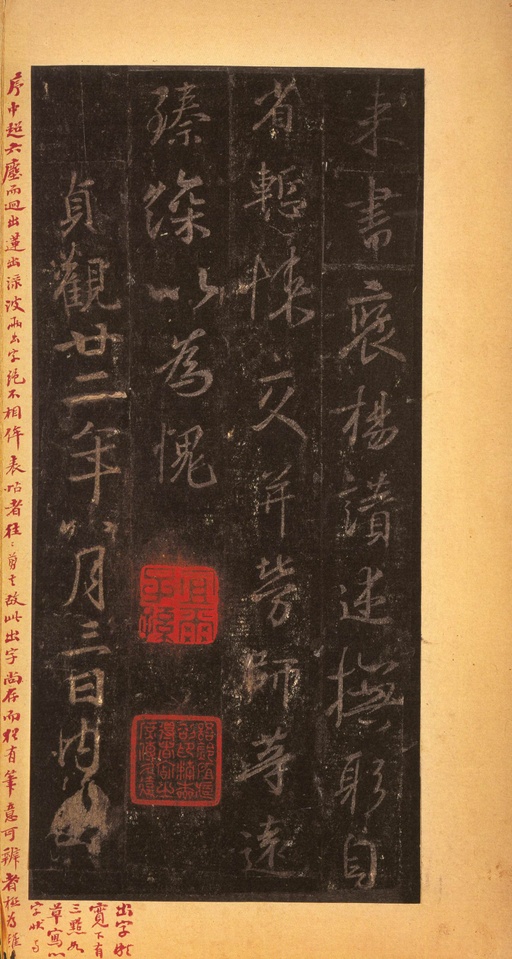 來書褒揚讚述撫躬自
省慙悚交并勞師等遠
臻深以為愧
貞觀廿二年八月三日內出
序中超六塵而迥出蓮出淥波兩出字絕不相侔表帖者往〻剪去故此出字尚存而猶有筆意可辨者極為難
出字
下有
三點如
草寫心
字狀